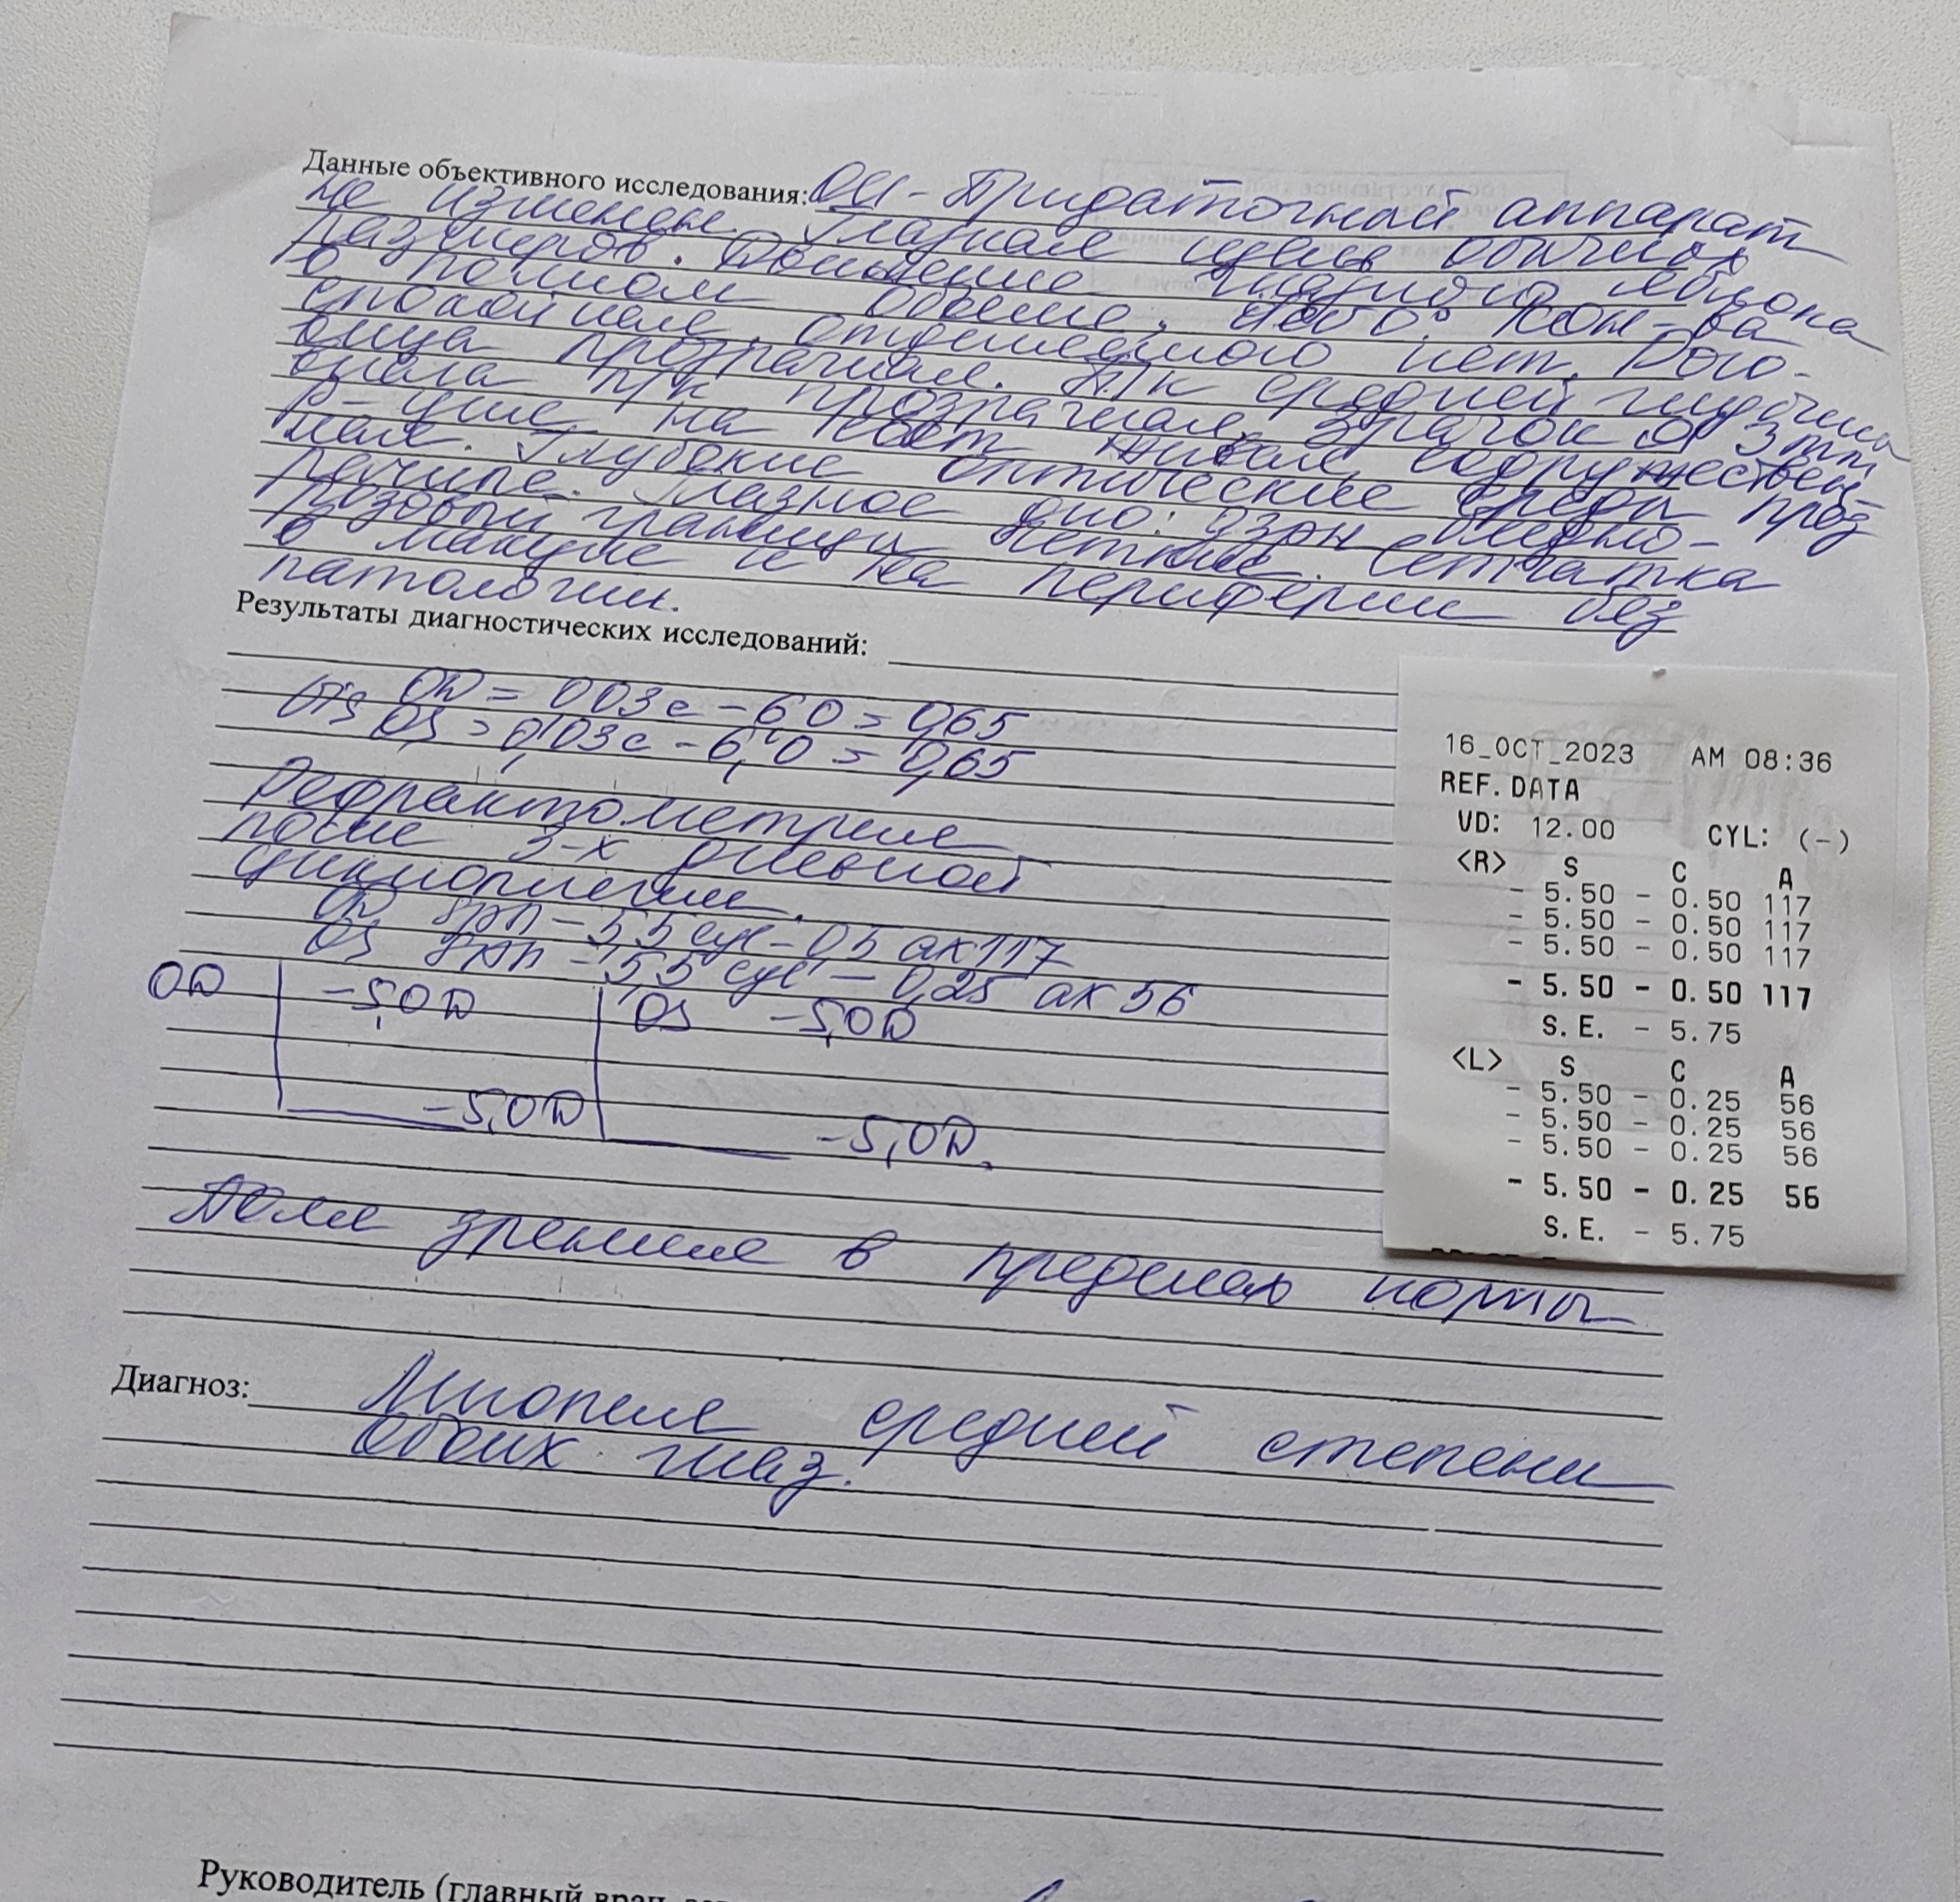 Данные объективного исследования: OU - Придаточный аппарат
не изменен. Глазная щель обычных
размеров. Движение глазного яблока
в полном объеме. Кон-ва
спокойная, отделяемого нет. Рого-
вица прозрачная. П/к средней глубины
влага п/к прозрачная, зрачок d 3mm
р-ция на свет живая, содружествен-
ная. Глубокие оптические среды проз
рачные. Глазное дно: ДЗН бледно-
розовый границы четкие. Сетчатка
в макуле и на периферии без
патологии.
Результаты диагностических исследований:
Vis OD = 003 c -6 0 = 0,65
OS = 0,03 c - 6,0 = 0,65
Рефрактометрия
после 3-х дневной
циклоплегии.
OD sph -5,5 cyl - 0,5 ax 117
OS sph -5,5 cyl - 0,25 ax 56
OD -5,0D OS -5,0D
-5,0D -5,0D.
Поля зрения в пределах нормы
Диагноз: Миопия средней степени
обоих глаз.
Руководитель (главный врач
16_OCT_2023 AM 08:36
REF. DATA
VD: 12.00 CYL: (-)
<R> S C A
- 5.50 - 0.50 117
- 5.50 - 0.50 117
- 5.50 - 0.50 117
- 5.50 - 0.50 117
S.E. - 5.75
<L> S C A
- 5.50 - 0.25 56
- 5.50 - 0.25 56
- 5.50 - 0.25 56
- 5.50 - 0.25 56
S.E. - 5.75